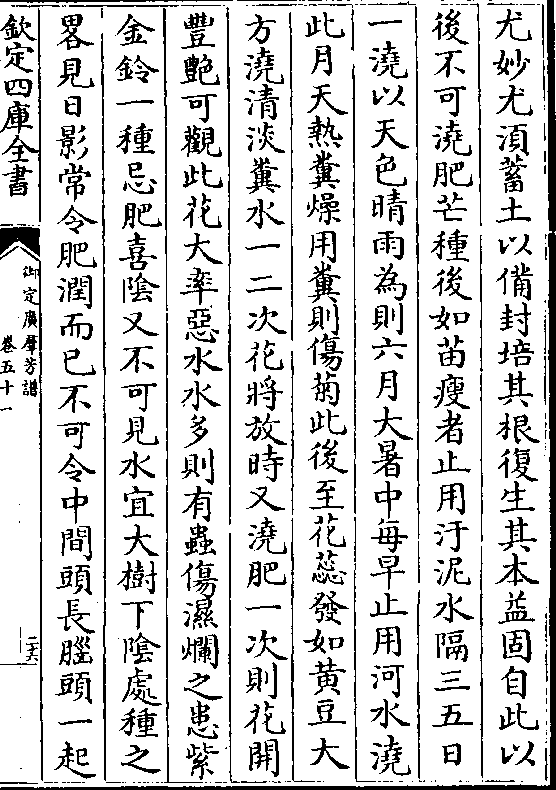 尤妙尤須蓄土以備封培其根復生其本益固自此以
後不可澆肥芒種後如苗瘦者止用汙泥水隔三五日
一澆以天色晴雨為則六月大暑中每早止用河水澆
此月天熱糞燥用糞則傷菊此後至花蕊發如黄豆大
方澆清淡糞水一二次花將放時又澆肥一次則花開
豐艶可觀此花大率惡水水多則有蟲傷濕爛之患紫
金鈴一種忌肥喜陰又不可見水宜大樹下陰處種之
畧見日影常令肥潤而已不可令中間頭長腦頭一起
欽定四庫全書
御定廣羣芳譜
卷五十一
二六